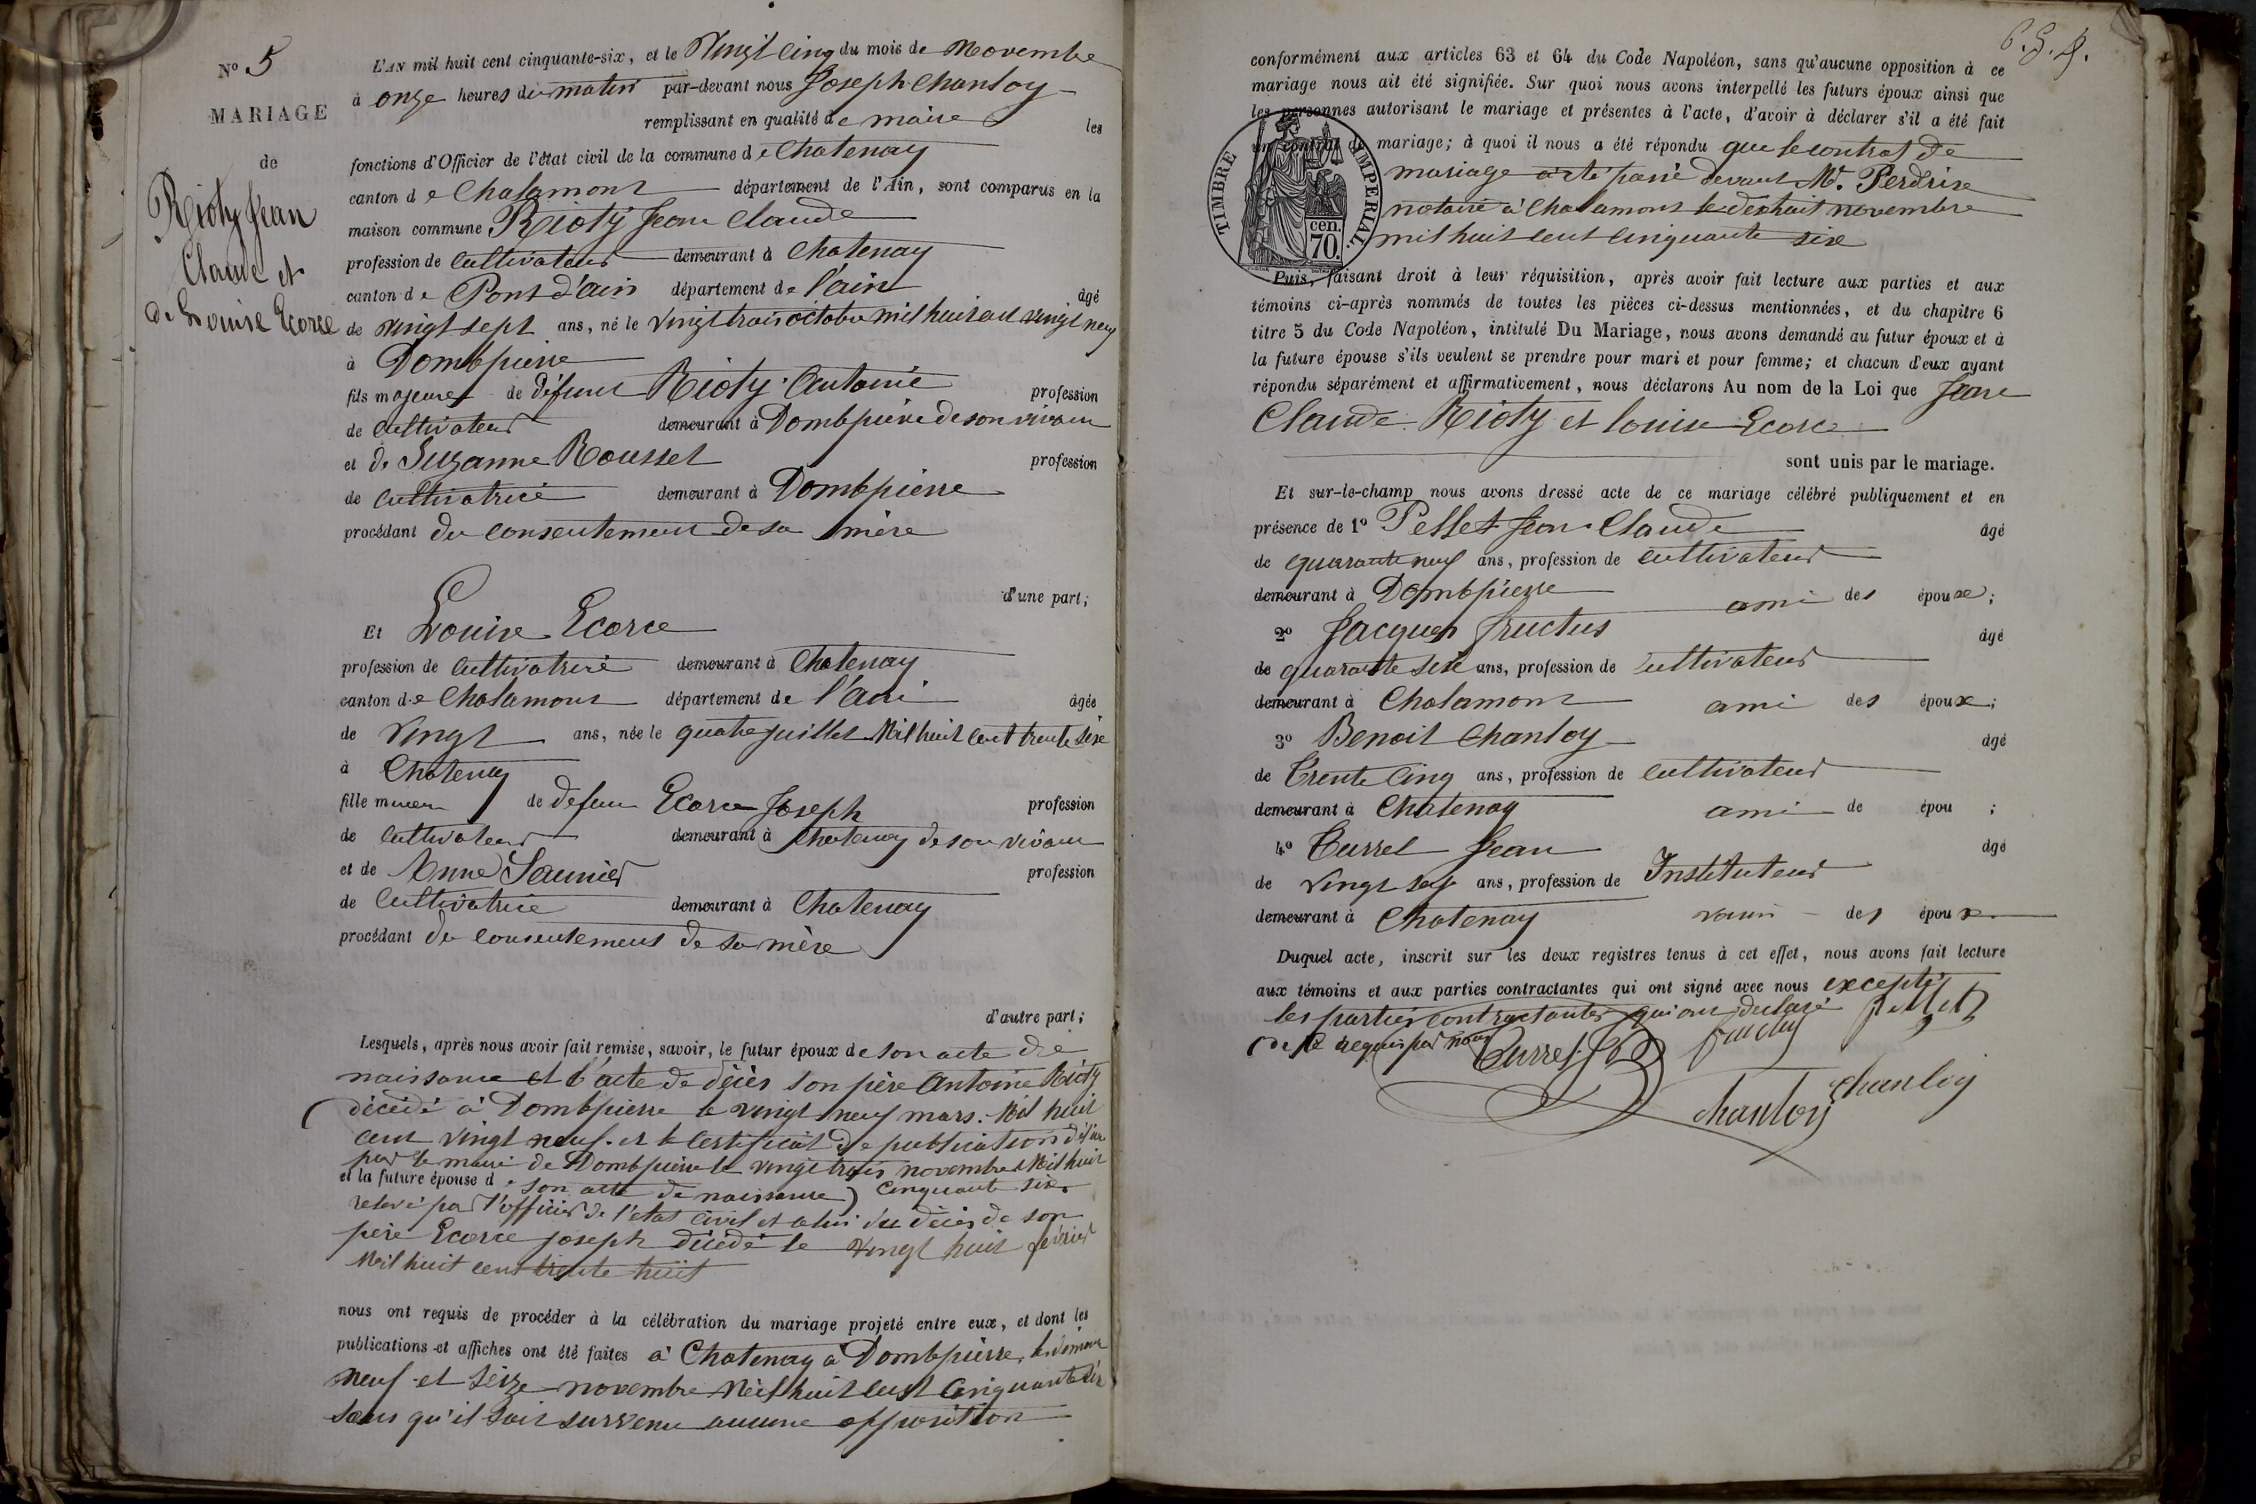 No 5
MARIAGE
de
Rioty Jean
Claude et
de Louise Ecorce
L'AN mil huit cent cinquante-six, et le Vingt cinq du mois de Novembre
à onze heures du matin par-devant nous Joseph Chanloy
remplissant en qualité de maire les
fonctions d'Officier de l'état civil de la commune de Chatenay
canton de Chalamont département de l'Ain, sont comparus en la
maison commune Rioty Jean Claude
profession de cultivateur demeurant à Chatenay
canton de Pont d'ain département de l'ain âgé
de vingt sept ans, né le vingt trois octobre mil huit cent vingt neuf
à Dombpierre
fils majeur de défunt Rioty Antoine profession
de cultivateur demeurant à Dombpierre de son vivant
et de Suzanne Rousset profession
de cultivatrice demeurant à Dombpierre
procédant du consentement de sa mère
d'une part;
Et Louise Ecorce
profession de cultivatrice demeurant à Chatenay
canton de Chalamont département de l'ain âgée
de vingt ans, née le quatre juillet Mil huit cent trente six
à Chatenay
fille mineure de defunt Ecorce Joseph profession
de cultivateur demeurant à Chatenay de son vivant
et de Anne Saunier profession
de cultivatrice demeurant à Chatenay
procédant du consentement de sa mère
d'autre part;
Lesquels, après nous avoir fait remise, savoir, le futur époux de son acte de
naissance et l'acte de décès son père Antoine Rioty
décédé à Dombpierre le vingt neuf mars Mil huit
cent vingt neuf et le certificat de publication délivré
par le maire de Dombpierre le vingt trois novembre Mil huit
et la future épouse de son acte de naissance) cinquante six
relevé par l'officier de l'etat civil et celui du décès de son
père Ecorce joseph décédé le vingt huit février
Mil huit cent trente huit
nous ont requis de procéder à la célébration du mariage projeté entre eux, et dont les
publications et affiches ont été faites à Chatenay à Dombpierre, les dimanche
neuf et seize novembre Mil huit cent cinquante six
sans qu'il soit survenu aucune opposition
conformément aux articles 63 et 64 du Code Napoléon, sans qu'aucune opposition à ce
mariage nous ait été signifiée. Sur quoi nous avons interpellé les futurs époux ainsi que
les personnes autorisant le mariage et présentes à l'acte, d'avoir à déclarer s'il a été fait
un contrat de mariage; à quoi il nous a été répondu que le contrat de
mariage a été passé devant Me. Perdrix
notaire à Chalamont le dexhuit novembre
mil huit cent cinquante six
TIMBRE IMPERIAL.
70 cen.
Puis, faisant droit à leur réquisition, après avoir fait lecture aux parties et aux
témoins ci-après nommés de toutes les pièces ci-dessus mentionnées, et du chapitre 6
titre 5 du Code Napoléon, intitulé Du Mariage, nous avons demandé au futur époux et à
la future épouse s'ils veulent se prendre pour mari et pour femme; et chacun d'eux ayant
répondu séparément et affirmativement, nous déclarons Au nom de la Loi que Jean
Claude Rioty et Louise Ecorce
sont unis par le mariage.
Et sur-le-champ nous avons dressé acte de ce mariage célébré publiquement et en
présence de 1º Pellet Jean Claude âgé
de quarante neuf ans, profession de cultivateur
demeurant à Dombpierre ami des époux;
2º Jacques Fructus âgé
de quarante six ans, profession de cultivateur
demeurant à Chalamont ami des époux;
3º Benoit Chanloy âgé
de Trente cinq ans, profession de cultivateur
demeurant à Chatenay ami de épou ;
4º Curret Jean âgé
de vingt ans, profession de Instituteur
demeurant à Chatenay des époux
Duquel acte, inscrit sur les deux registres tenus à cet effet, nous avons fait lecture
aux témoins et aux parties contractantes qui ont signé avec nous excepté
les parties contractantes qui ont déclaré
de ce requis par nous
Pellet
Curret
Fructus
Chanloy
Chanloy